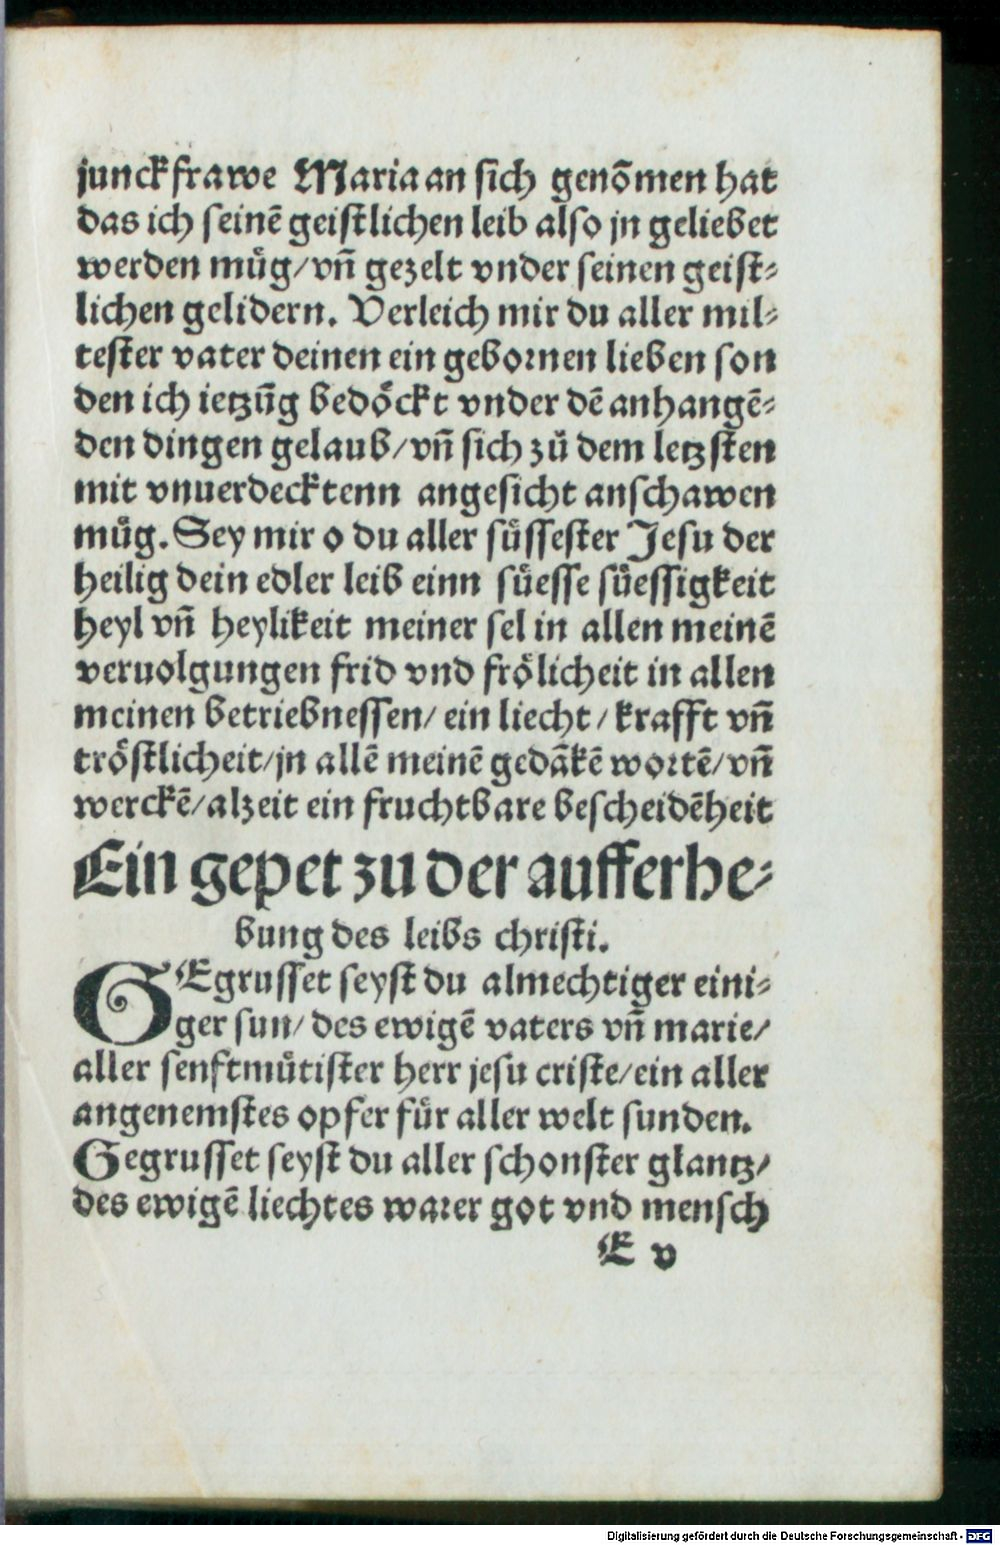 junckfrawe Maria an sich genōmen hat
das ich seinē geistlichen leib also jn geliebet
werden mu̇g/vn̄ gezelt vnder seinen geist⸗
lichen gelidern. Verleich mir du aller mil⸗
tester vater deinen ein gebornen lieben son
den ich ietzūg bedöckt vnder dē anhangē⸗
den dingen gelaub/vn̄ sich zů dem letzsten
mit vnuerdecktenn angesicht anschawen
mu̇g. Sey mir o du aller süssester Jesu der
heilig dein edler leib einn süesse süessigkeit
heyl vn̄ heylikeit meiner sel in allen meinē
veruolgungen frid vnd frölicheit in allen
meinen betriebnessen/ ein liecht / krafft vn̄
tröstlicheit/jn allē meinē gedākē wortē/vn̄
werckē/alzeit ein fruchtbare bescheidēheit
Ein gepet zu der aufferhe⸗
bung des leibs christi.
GEgrusset seyst du almechtiger eini⸗
ger sun/ des ewigē vaters vn̄ marie/
aller senftmütister herr jesu criste/ein aller
angenemstes opfer für aller welt sunden.
Gegrusset seyst du aller schonster glantz/
des ewigē liechtes warer got vnd mensch
E v
Digitalisierung gefördert durch die Deutsche Forschungsgemeinschaft - DFG